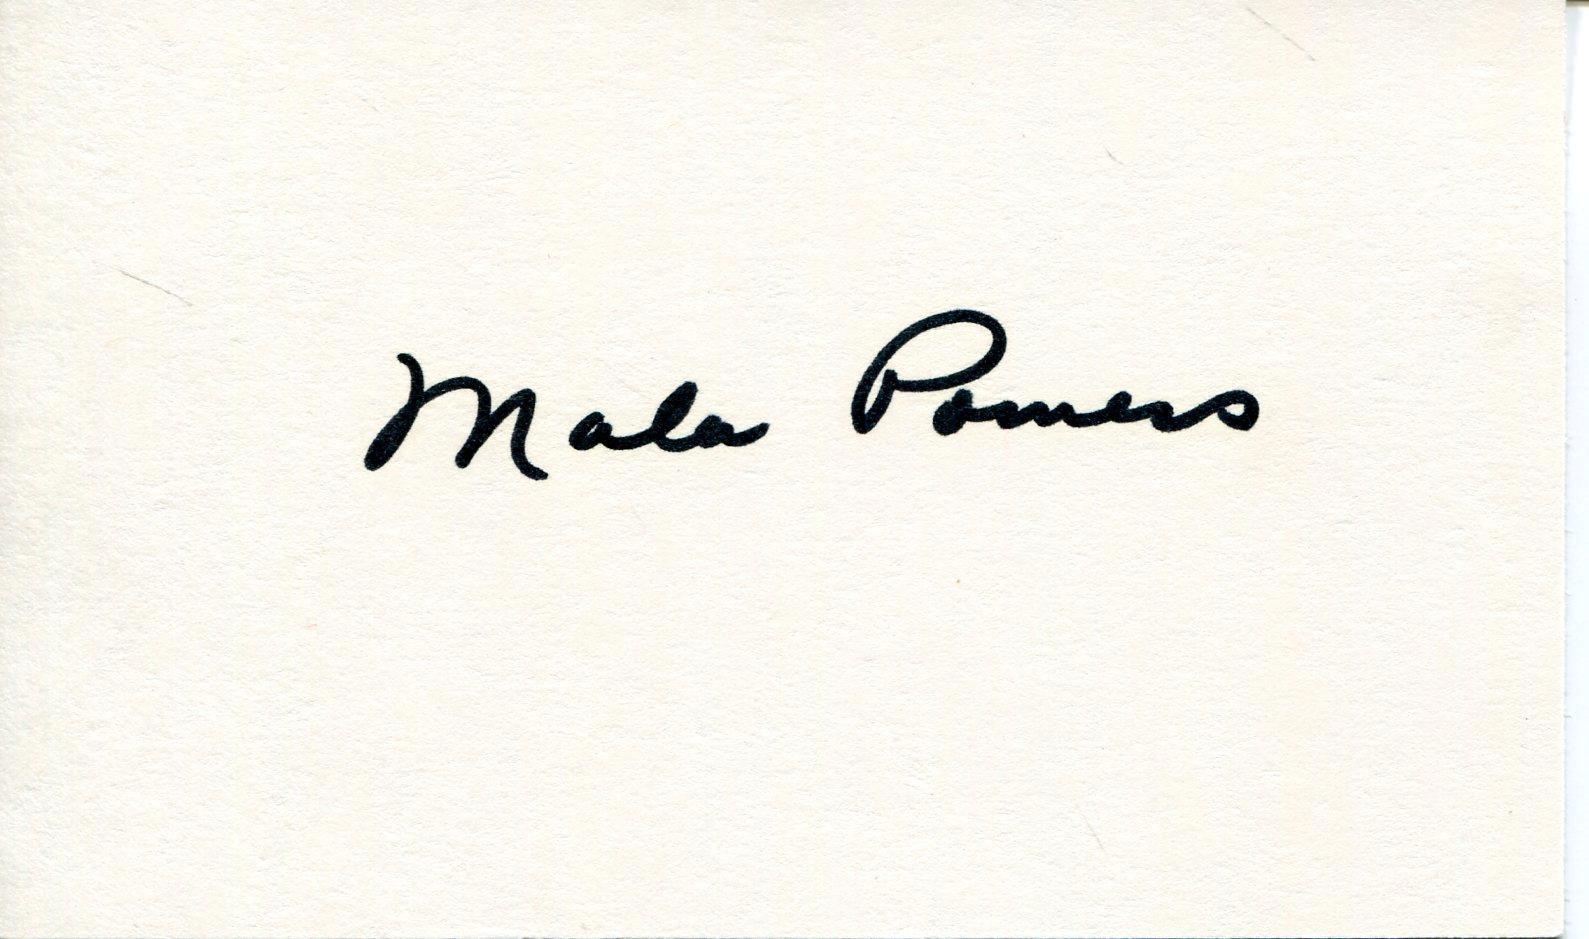 Mala Powers